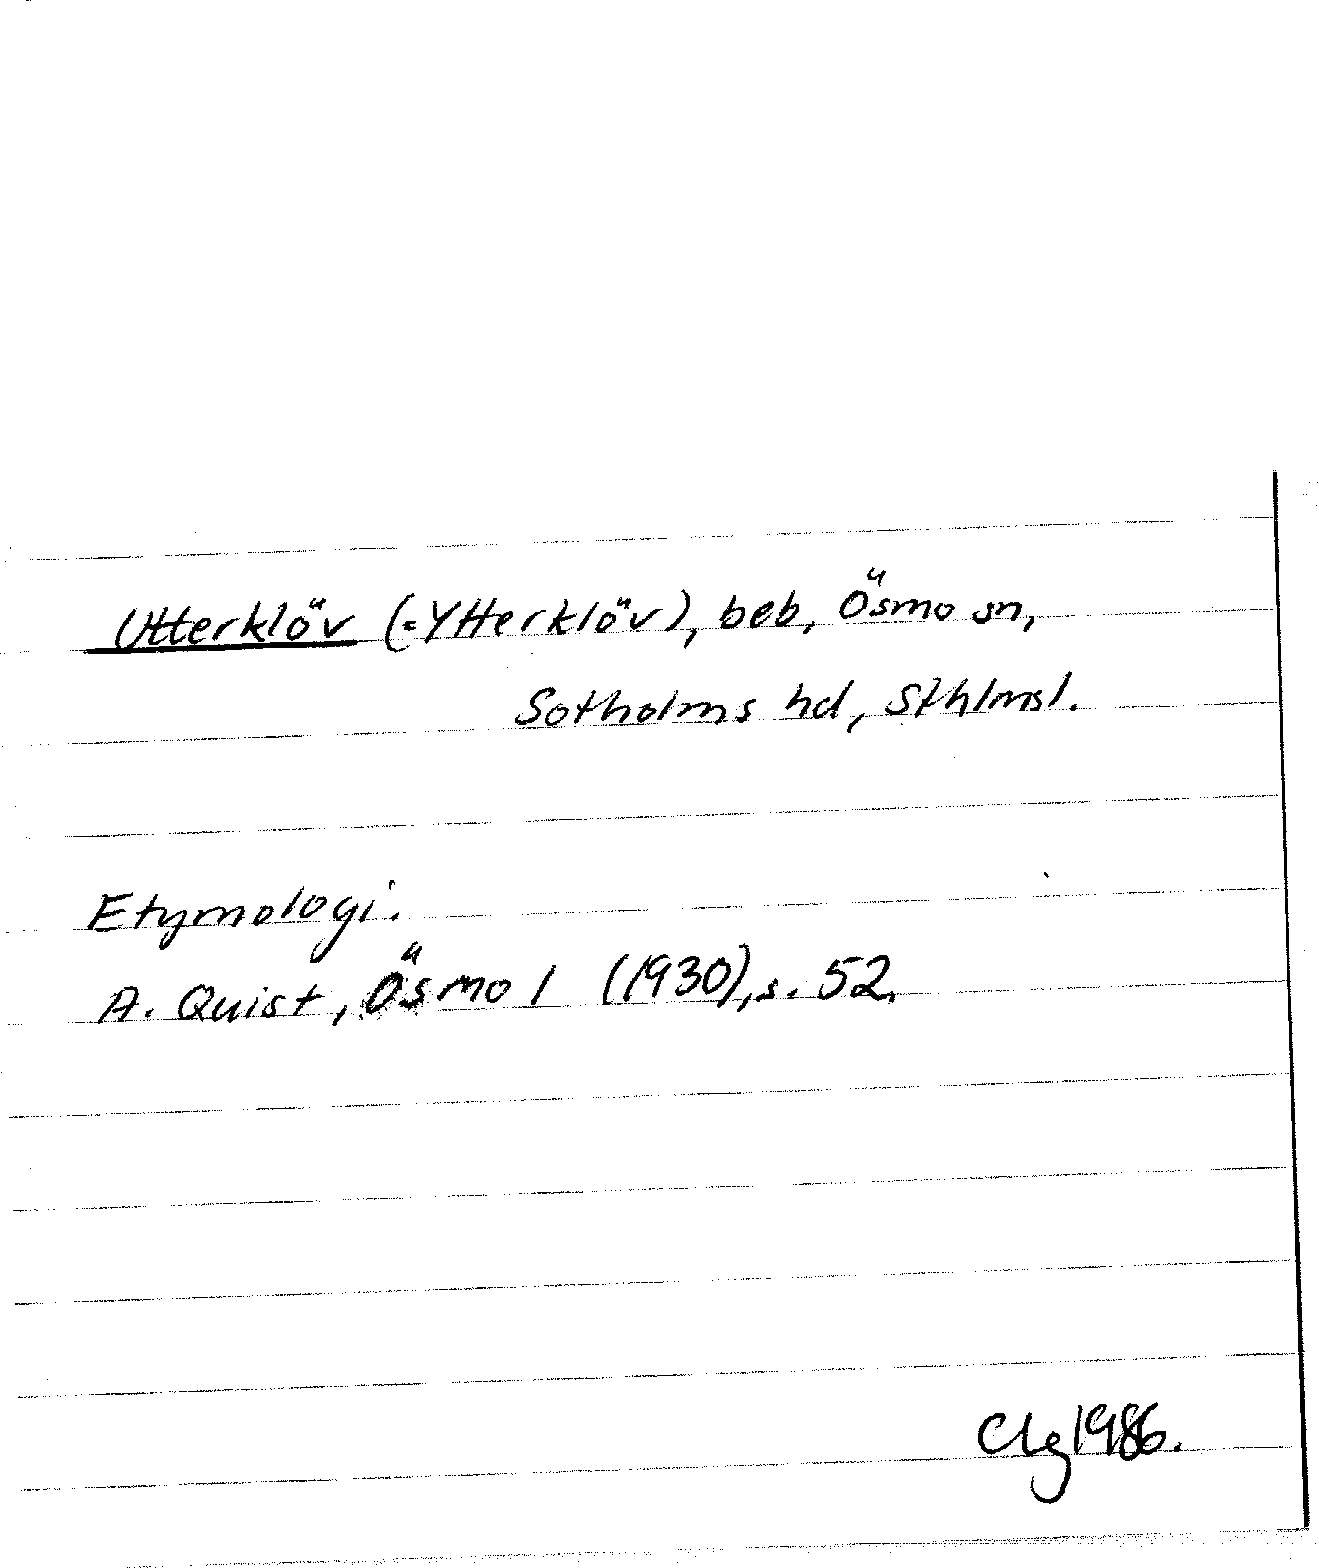 Utterklöv (=Ytterklöv), beb, Ösmo sn,
Sotholms hd, Sthlmsl.
Etymologi.
A. Quist, Ösmo 1 (1930), s. 52.
Clg 1986.